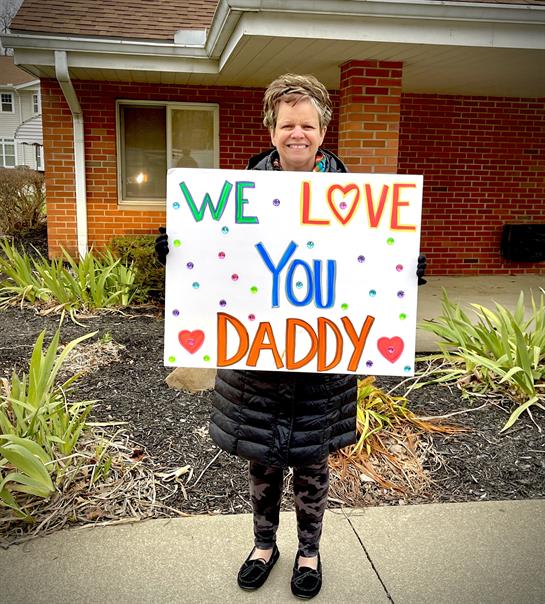 WE LOVE
YOU
DADDY